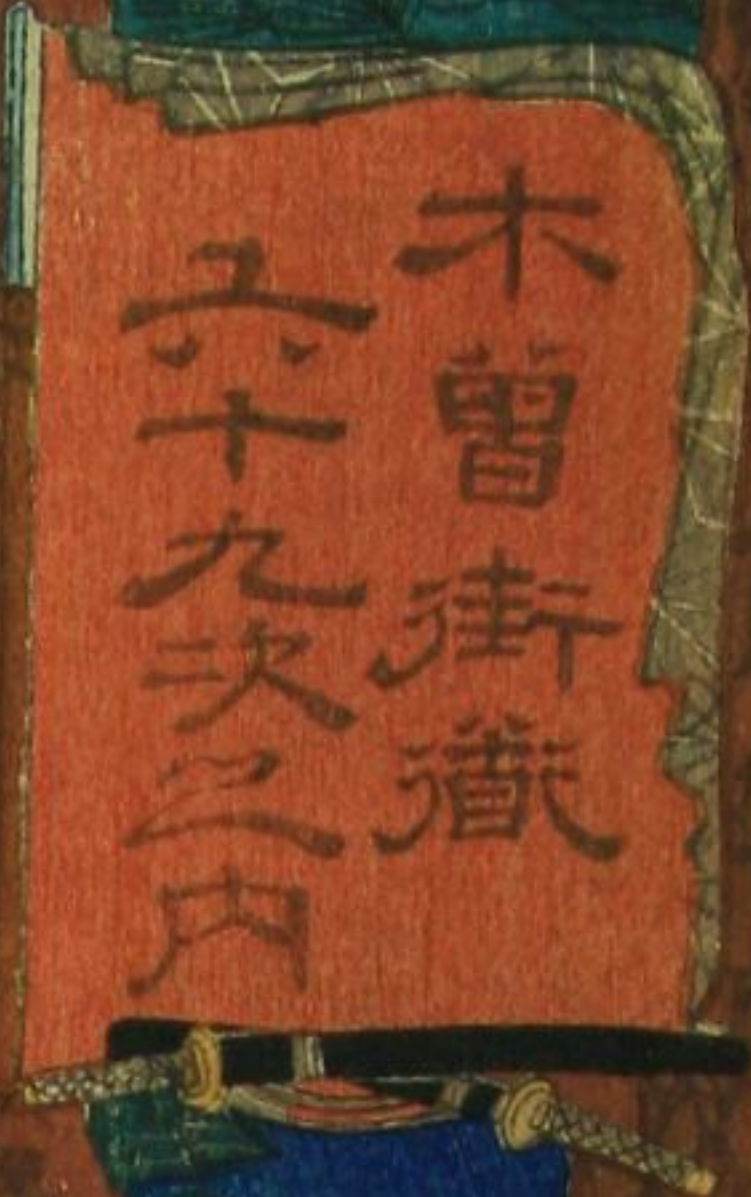 木曾街道
六十九次之内